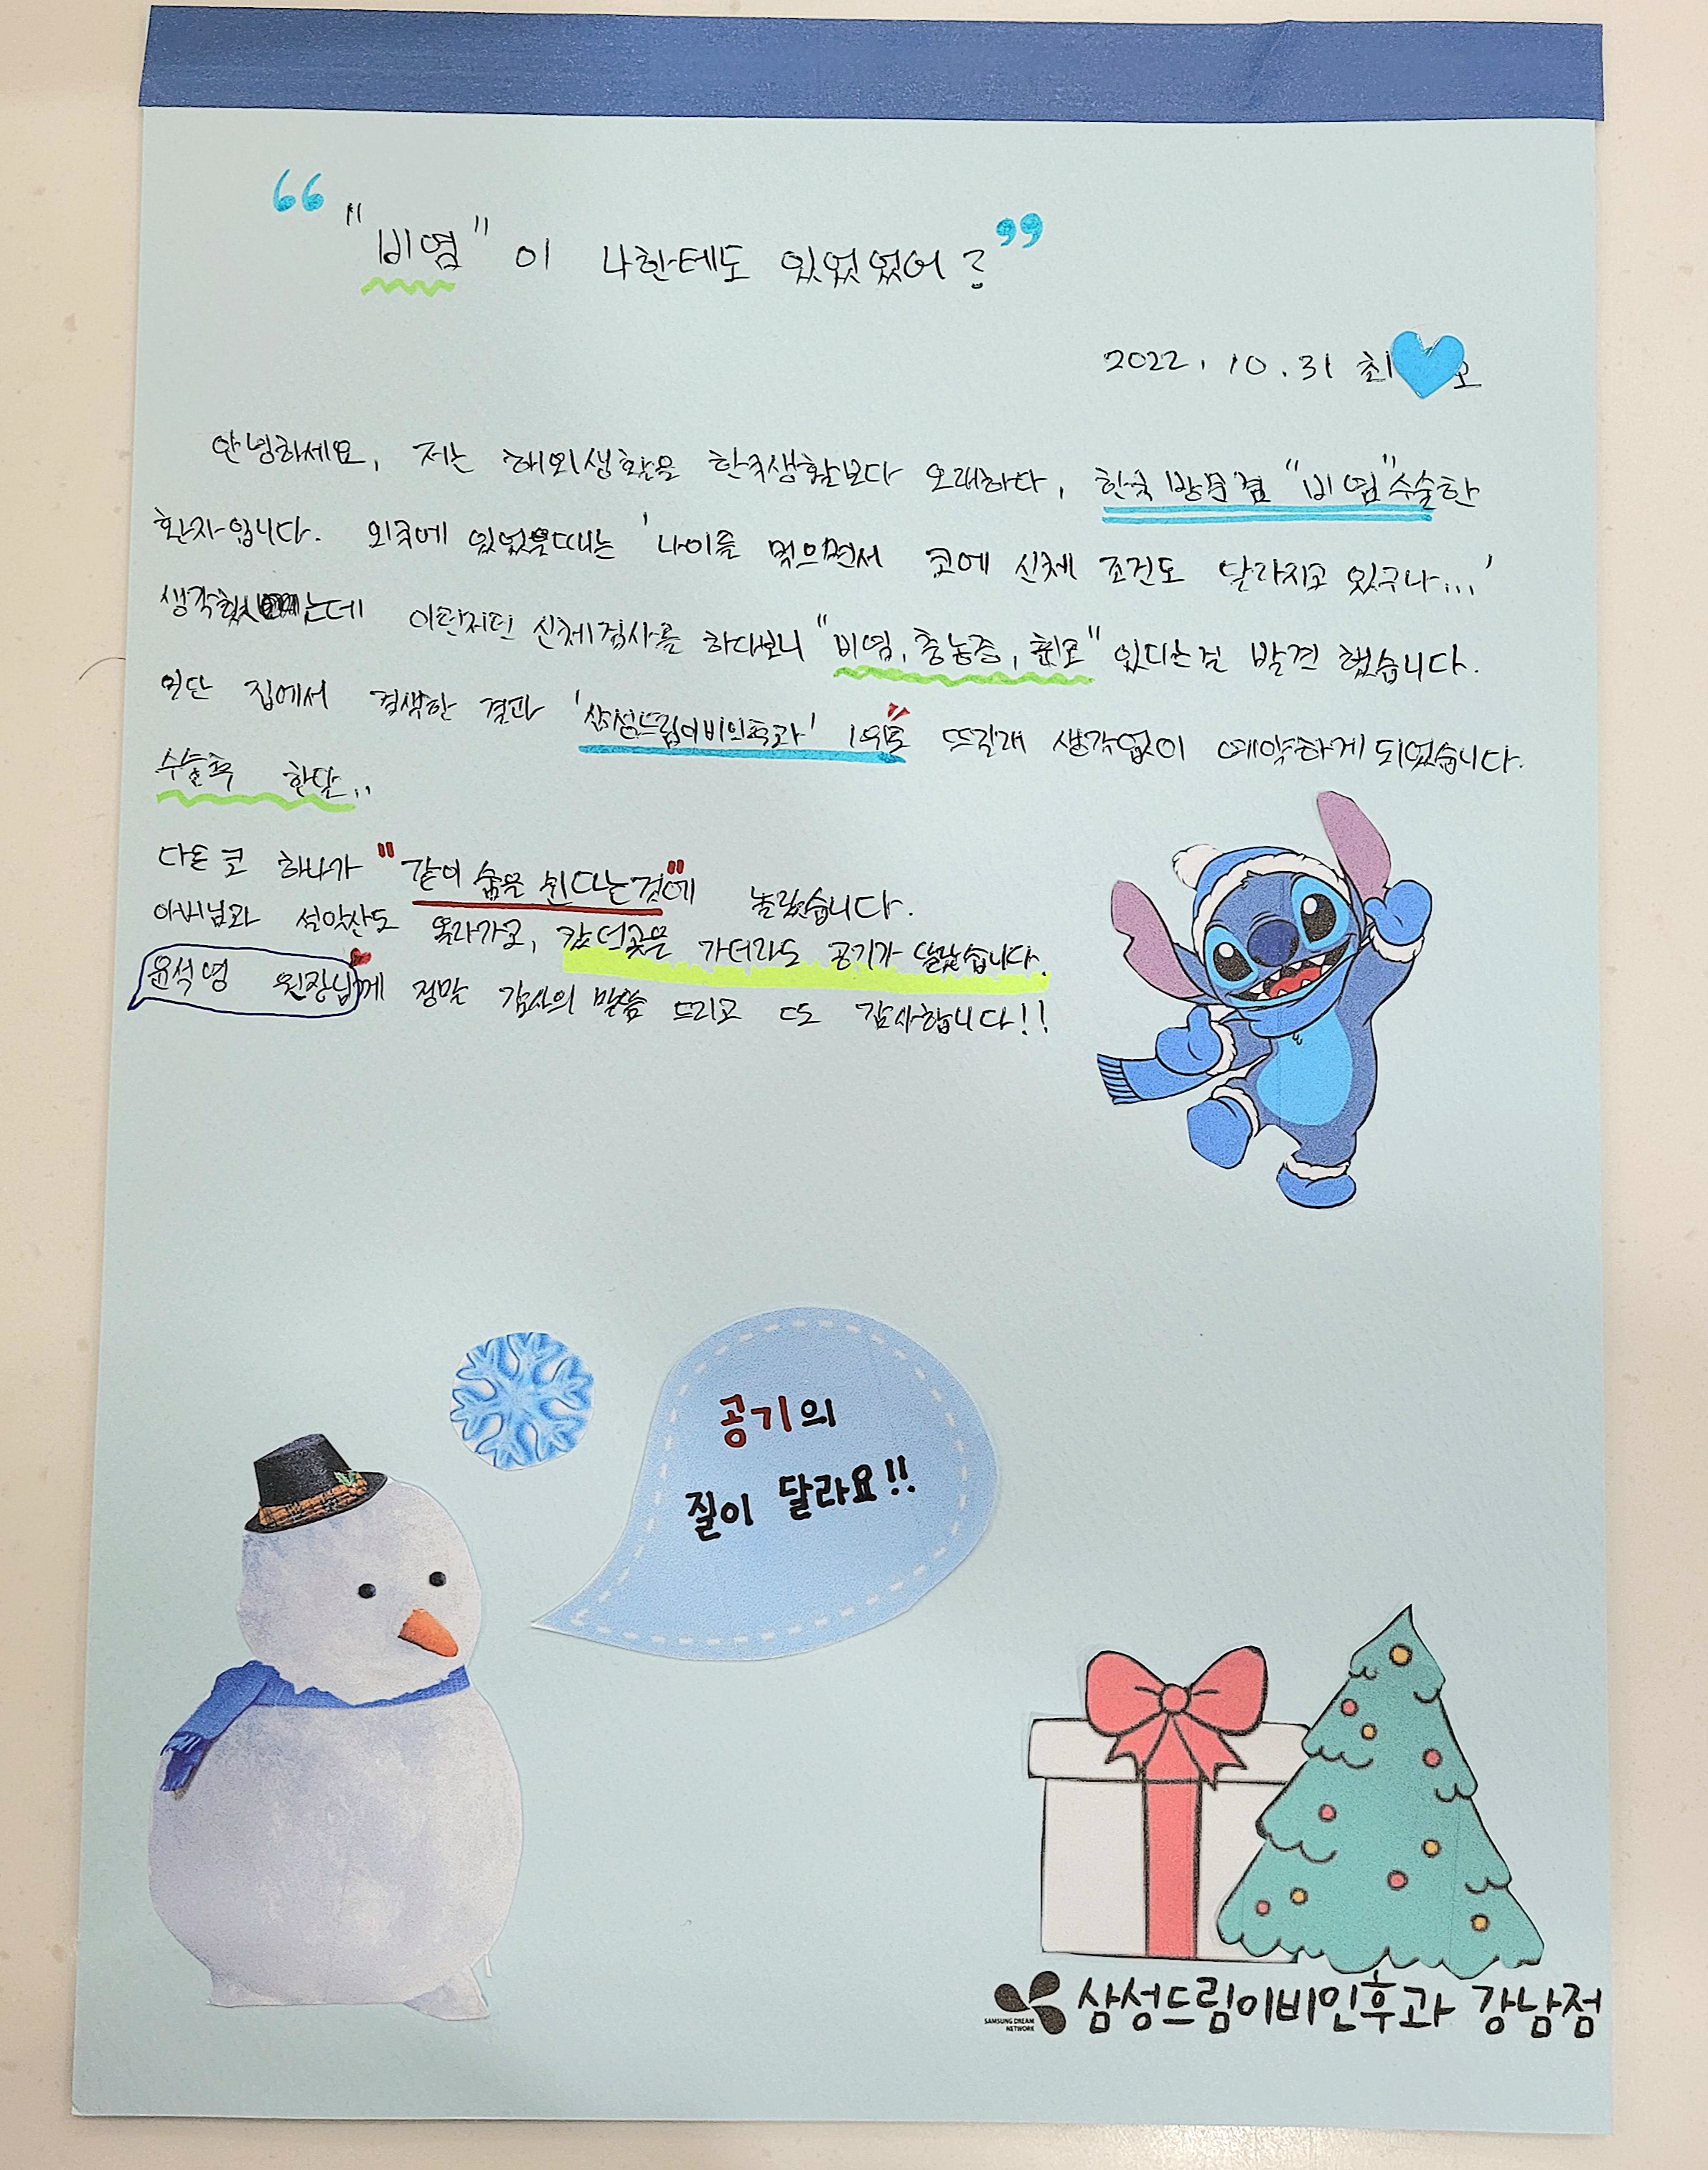 “ "비염" 이 나한테도 있었었어? ”
2022. 10. 31 최 오
안녕하세요, 저는 해외생활을 한국생활보다 오래하다, 한국 방문겸 "비염"수술한
환자입니다. 외국에 있었을때는 '나이를 먹으면서 코에 신체 조건도 달라지고 있구나...'
생각했 는데 이런저런 신체검사를 하다보니 "비염, 충농증, " 있다는걸 발견 했습니다.
일단 집에서 검색한 결과 '삼성드림이비인후과' 1위로 뜨길래 생각없이 예약하게 되었습니다.
수술후 한달..
다른 코 하나가 "같이 숨을 쉰다는것"에 놀랐습니다.
아버님과 설악산도 올라가고, 갔던곳을 가더라도 공기가 달랐습니다.
윤석영 원장님께 정말 감사의 말씀 드리고 또 감사합니다!!
공기의
질이 달라요!!
SAMSUNG DREAM
NETWORK
삼성드림이비인후과 강남점